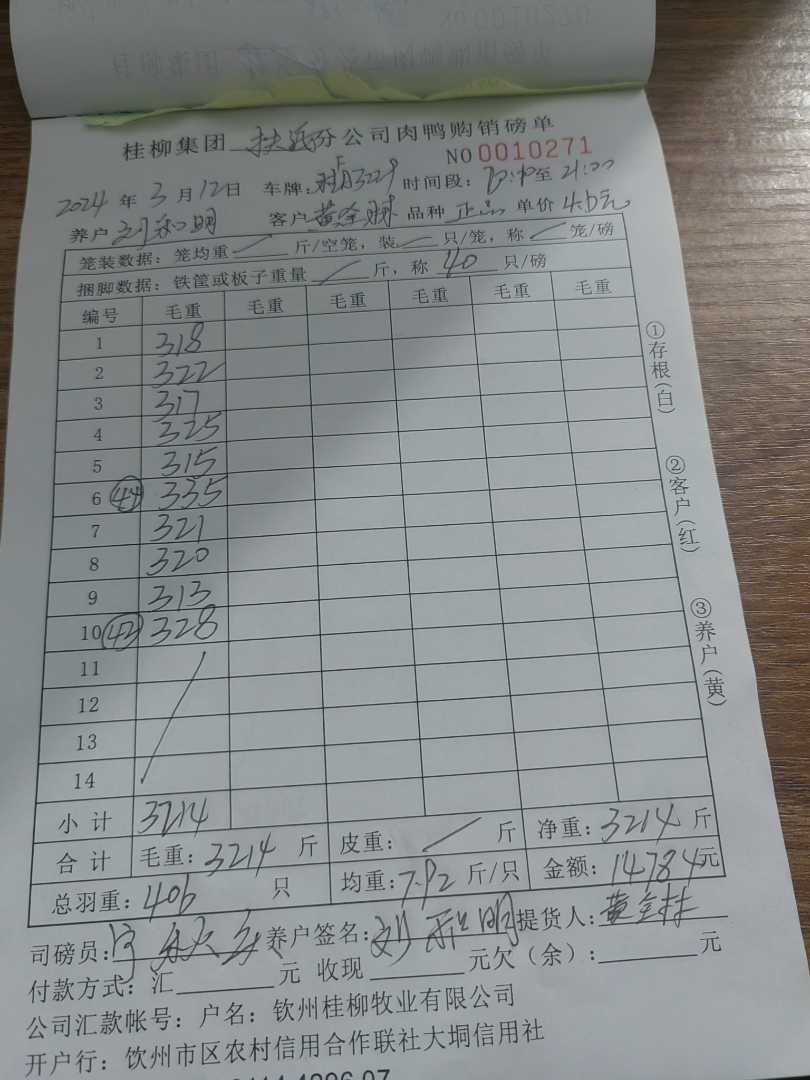 桂柳集团 扶绥分公司肉鸭购销磅单
NO 0010271
2024 年 3 月 12 日 车牌: 3229 时间段: 至 21:00
养户 刘和明 客户 黄金 品种 正品 单价 4.6元
笼装数据: 笼均重 / 斤/空笼, 装 / 只/笼, 称 / 笼/磅
捆脚数据: 铁筐或板子重量 / 斤, 称 40 只/磅
编号 毛重 毛重 毛重 毛重 毛重 毛重
1 318
2 322
3 317
4 325
5 315
6 (44) 335
7 321
8 320
9 313
10 (42) 328
11
12
13
14
小计 3214
合计 毛重: 3214 斤 皮重: / 斤 净重: 3214 斤
总羽重: 406 只 均重: 7.92 斤/只 金额: 14784元
司磅员: 养户签名: 刘和明 提货人: 黄金
付款方式: 汇 元 收现 元欠(余): 元
公司汇款帐号: 户名: 钦州桂柳牧业有限公司
开户行: 钦州市区农村信用合作联社大垌信用社
①存根(白)
②客户(红)
③养户(黄)